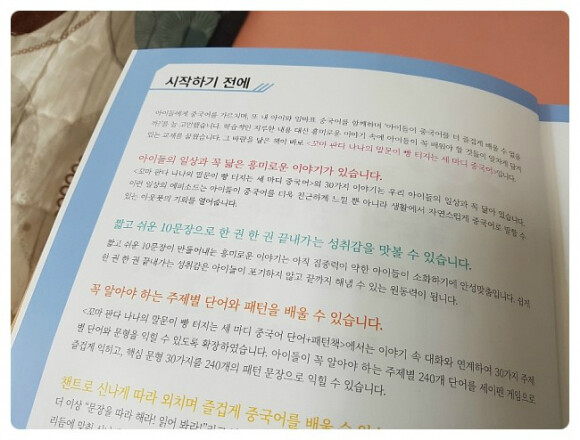 시작하기 전에
아이들에게 중국어를 가르치며, 또 내 아이와 엄마표 중국어를 함께하며 '아이들이 중국어를 더 즐겁게 배울 수 없을
까?'를 늘 고민했습니다. 학습적인 지루한 내용 대신 흥미로운 이야기 속에 아이들이 꼭 배워야 할 것들이 알차게 담겨
있는 교재를 꿈꿨습니다. 그 바람을 담은 책이 바로 <꼬마 판다 나나의 말문이 빵 터지는 세 마디 중국어>입니다.
아이들의 일상과 꼭 닮은 흥미로운 이야기가 있습니다.
<꼬마 판다 나나의 말문이 빵 터지는 세 마디 중국어>의 30가지 이야기는 우리 아이들의 일상과 꼭 닮아 있습니다.
이런 일상의 에피소드는 아이들이 중국어를 더욱 친근하게 느낄 뿐 아니라 생활에서 자연스럽게 중국어로 말할 수
있는 아웃풋의 기회를 열어줍니다.
짧고 쉬운 10문장으로 한 권 한 권 끝내가는 성취감을 맛볼 수 있습니다.
짧고 쉬운 10문장이 만들어내는 흥미로운 이야기는 아직 집중력이 약한 아이들이 소화하기에 안성맞춤입니다. 쉽게
한 권 한 권 끝내가는 성취감은 아이들이 포기하지 않고 끝까지 해낼 수 있는 원동력이 됩니다.
꼭 알아야 하는 주제별 단어와 패턴을 배울 수 있습니다.
<꼬마 판다 나나의 말문이 빵 터지는 세 마디 중국어 단어+패턴책>에서는 이야기 속 대화와 연계하여 30가지 주제
별 단어와 문형을 익힐 수 있도록 확장하였습니다. 아이들이 꼭 알아야 하는 주제별 240개 단어를 세이펜 게임으로
즐겁게 익히고, 핵심 문형 30가지를 240개의 패턴 문장으로 익힐 수 있습니다.
챈트로 신나게 따라 외치며 즐겁게 중국어를 배울 수
더 이상 "문장을 따라 해라! 읽어 봐라!"
리듬에 맞춰